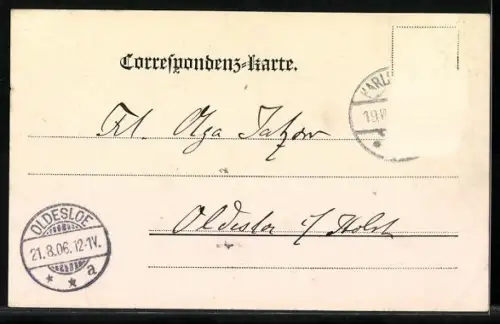 Correspondenz-Karte.
KARL
19
Frl. Olga Tatzow
Oldesloe i/Holst
OLDESLOE
21.8.06.12-1V.
* * a